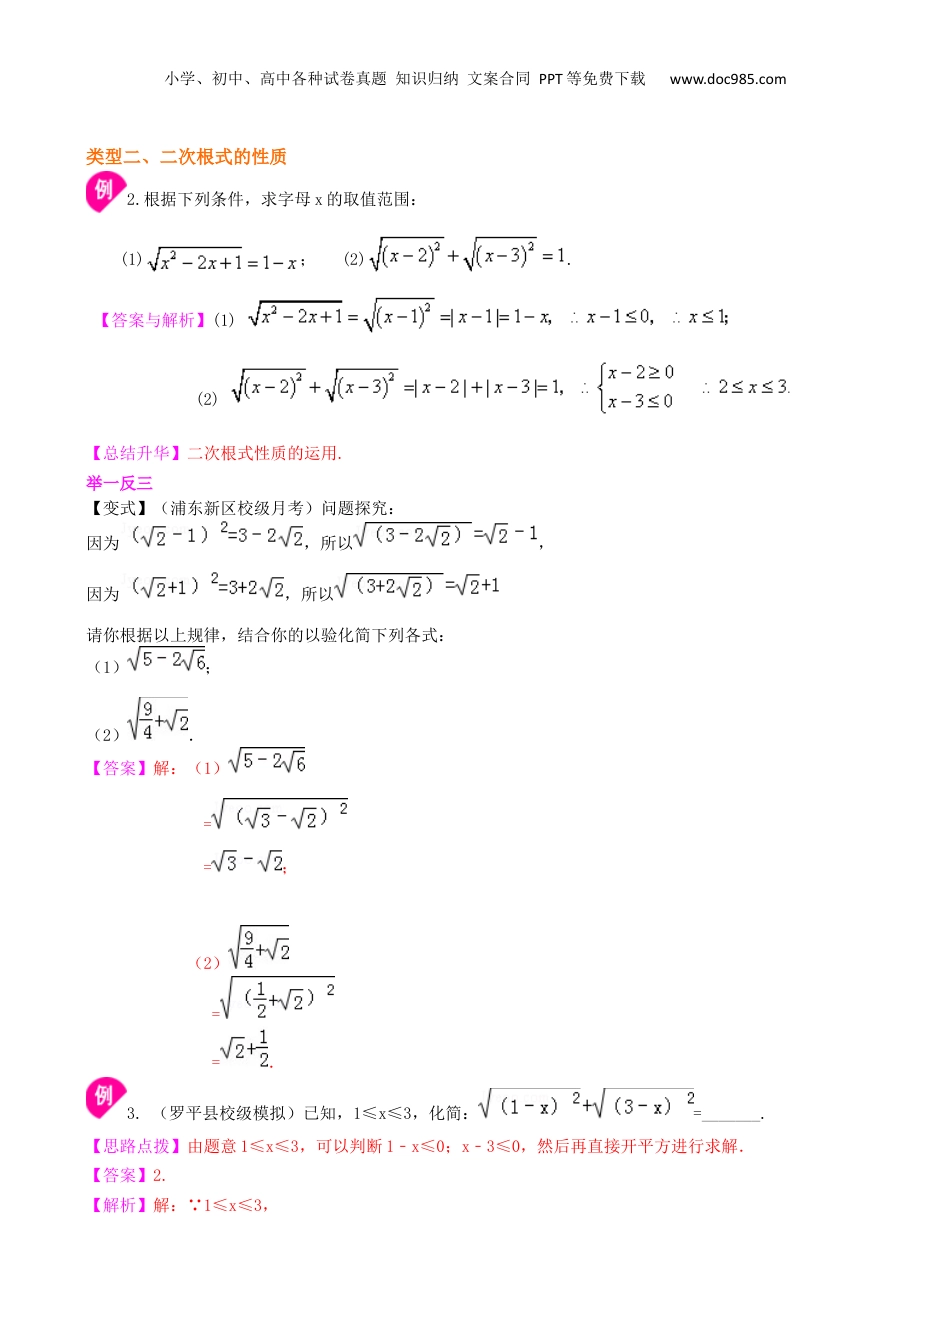 小学、初中、高中各种试卷真题 知识归纳 文案合同 PPT 等免费下载 www.doc985.com
类型二、二次根式的性质
例 2.根据下列条件，求字母 x 的取值范围：
(1) √(x²－2x＋1)＝1－x； (2) √((x－2)²)＋√((x－3)²)＝1.
【答案与解析】(1) √(x²－2x＋1)＝√((x－1)²)＝|x－1|＝1－x，∴x－1≤0，∴x≤1；
(2) √((x－2)²)＋√((x－3)²)＝|x－2|＋|x－3|＝1，∴{x－2≥0 x－3≤0 ∴2≤x≤3.
【总结升华】二次根式性质的运用.
举一反三
【变式】（浦东新区校级月考）问题探究：
因为（√2－1）²=3－2√2，所以√（3－2√2）=√2－1，
因为（√2+1）²=3+2√2，所以√（3+2√2）=√2+1
请你根据以上规律，结合你的以验化简下列各式：
（1）√(5－2√6)；
（2）√(9/4+√2)．
【答案】解：（1）√(5－2√6)
=√(（√3－√2）²)
=√3－√2；
（2）√(9/4+√2)
=√(（1/2+√2）²)
=√2+1/2．
例 3. （罗平县校级模拟）已知，1≤x≤3，化简：√(（1－x）²)+√(（3－x）²)=______．
【思路点拨】由题意 1≤x≤3，可以判断 1﹣x≤0；x﹣3≤0，然后再直接开平方进行求解．
【答案】2.
【解析】解：∵1≤x≤3，